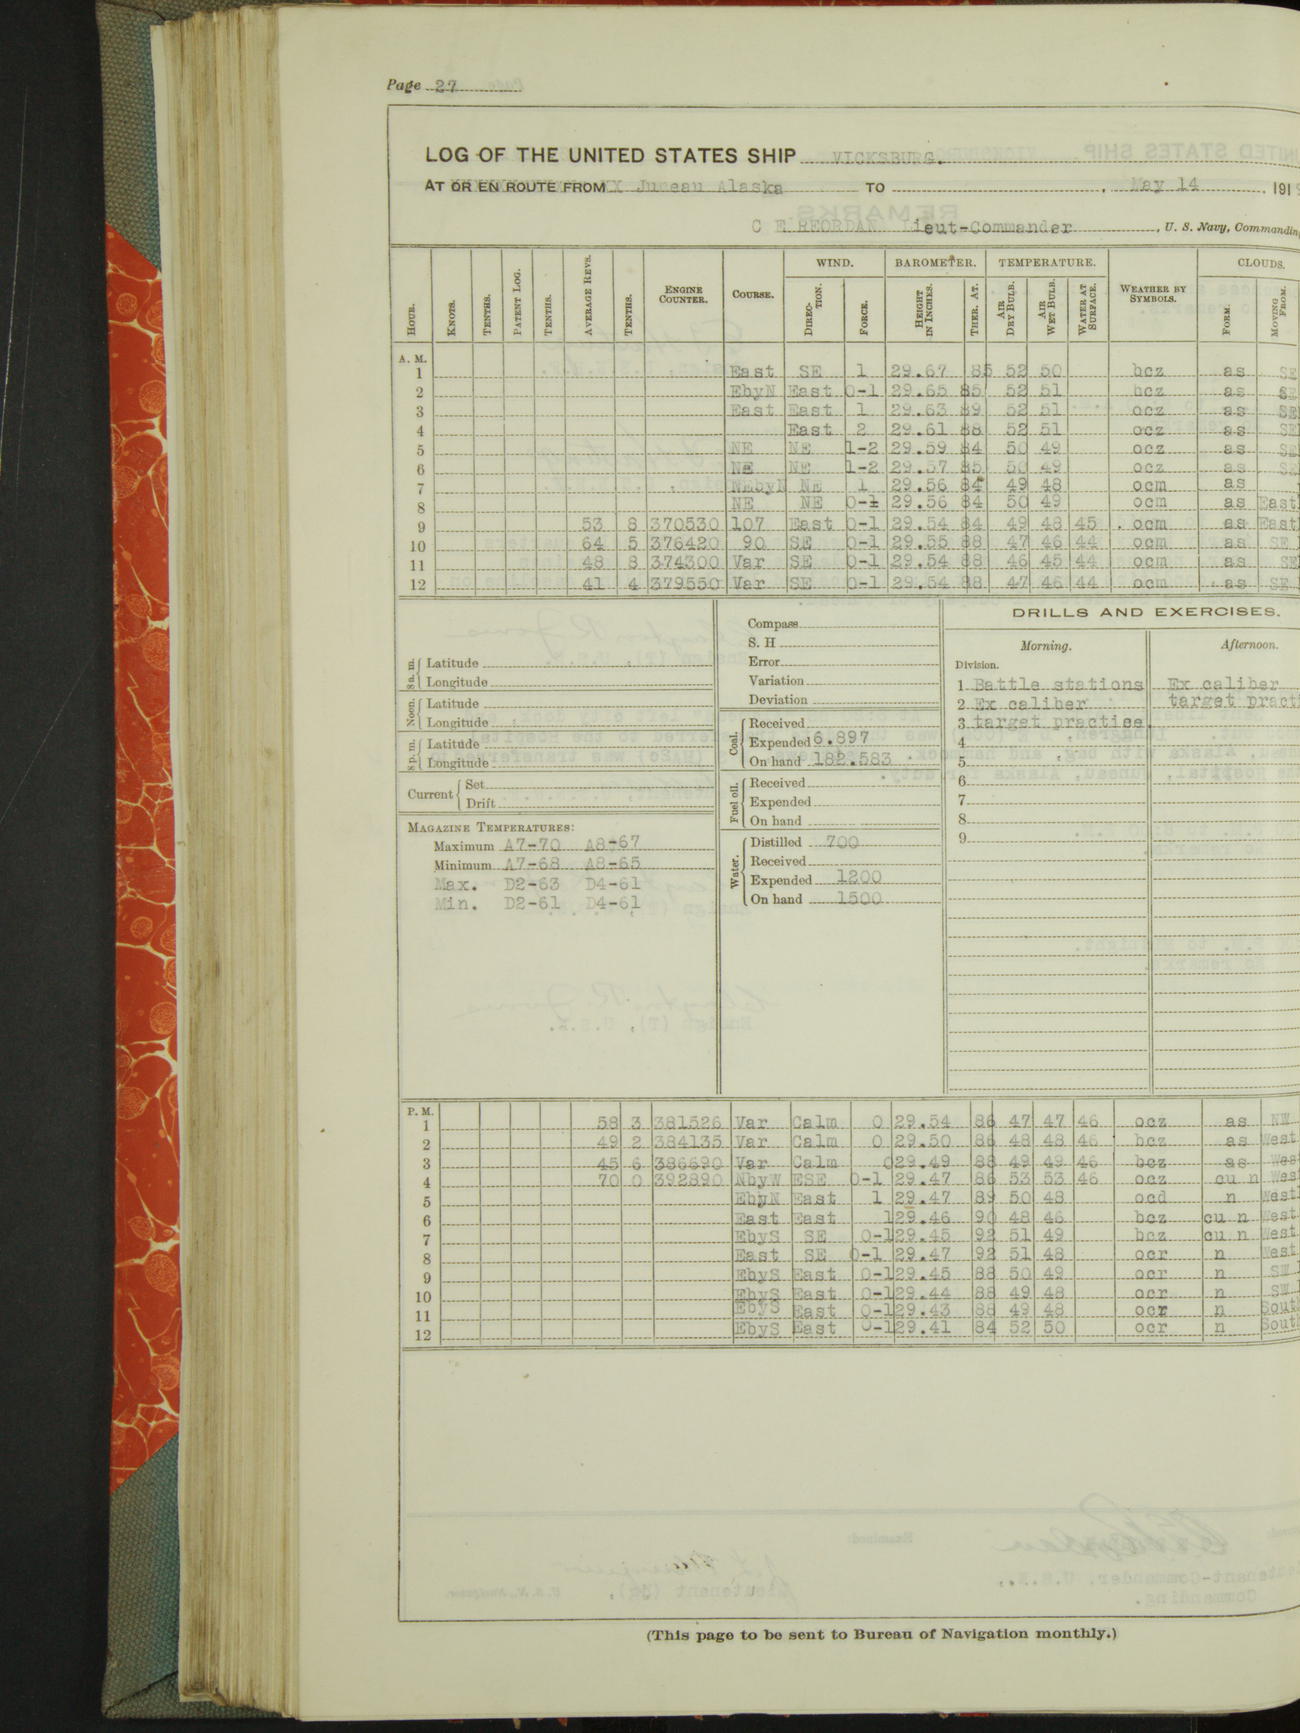 Page 27
LOG OF THE UNITED STATES SHIP VICKSBURG.
AT OR EN ROUTE FROM Juneau Alaska TO , May 14 , 191
C E REORDAN Lieut-Commander , U. S. Navy, Commanding
WIND. BAROMETER. TEMPERATURE. CLOUDS.
HOUR. KNOTS. TENTHS. PATENT LOG. TENTHS. AVERAGE REVS. TENTHS. ENGINE COUNTER. COURSE. DIRECTION. FORCE. HEIGHT IN INCHES. THER. AT. AIR DRY BULB. AIR WET BULB. WATER AT SURFACE. WEATHER BY SYMBOLS. FORM. MOVING FROM.
A. M.
1 East SE 1 29.67 85 52 50 bcz as SE
2 EbyN East 0-1 29.65 85 52 51 bcz as SE
3 East East 1 29.63 89 52 51 ocz as SE
4 East 2 29.61 88 52 51 ocz as SE
5 NE NE 1-2 29.59 84 50 49 ocz as SE
6 NE NE 1-2 29.57 85 50 49 ocz as SE
7 NEbyN NE 1 29.56 84 49 48 ocm as
8 NE NE 0-1 29.56 84 50 49 ocm as East
9 53 8 370530 107 East 0-1 29.54 84 49 48 45 ocm as East
10 64 5 376420 90 SE 0-1 29.55 88 47 46 44 ocm as SE
11 48 8 374300 Var SE 0-1 29.54 88 46 45 44 ocm as SE
12 41 4 379550 Var SE 0-1 29.54 88 47 46 44 ocm as SE
8 a.m. Latitude
Longitude
Noon. Latitude
Longitude
8 p.m. Latitude
Longitude
Current Set
Drift
MAGAZINE TEMPERATURES:
Maximum A7-70 A8-67
Minimum A7-68 A8-65
Max. D2-63 D4-61
Min. D2-61 D4-61
Compass
S. H
Error
Variation
Deviation
Coal. Received
Expended 6.897
On hand 182.583
Fuel oil. Received
Expended
On hand
Water. Distilled 700
Received
Expended 1200
On hand 1500
DRILLS AND EXERCISES.
Morning. Afternoon.
Division.
1 Battle stations Ex caliber
2 Ex caliber target practi
3 target practise.
4
5
6
7
8
9
P. M.
1 58 3 381526 Var Calm 0 29.54 86 47 47 46 ocz as NW
2 49 2 384135 Var Calm 0 29.50 86 48 48 46 bcz as West
3 45 6 386690 Var Calm 0 29.49 88 49 49 46 bcz as West
4 70 0 392890 NbyW ESE 0-1 29.47 86 53 53 46 ocz cu n West
5 EbyN East 1 29.47 89 50 48 ocd n West
6 East East 1 29.46 90 48 46 bcz cu n West
7 EbyS SE 0-1 29.45 92 51 49 bcz cu n West
8 East SE 0-1 29.47 92 51 48 ocr n West
9 EbyS East 0-1 29.45 88 50 49 ocr n SW
10 EbyS East 0-1 29.44 88 49 48 ocr n SW
11 EbyS East 0-1 29.43 88 49 48 ocr n South
12 EbyS East 0-1 29.41 84 52 50 ocr n South
(This page to be sent to Bureau of Navigation monthly.)